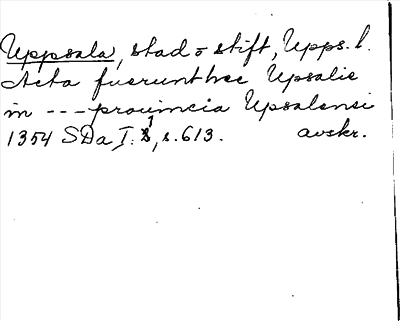 Uppsala, stad o stift, Upps. l.
Acta fuerunt hec Upsalie
in --- prouincia Upsalensi
1354 SDa I: 1, s. 613. avskr.